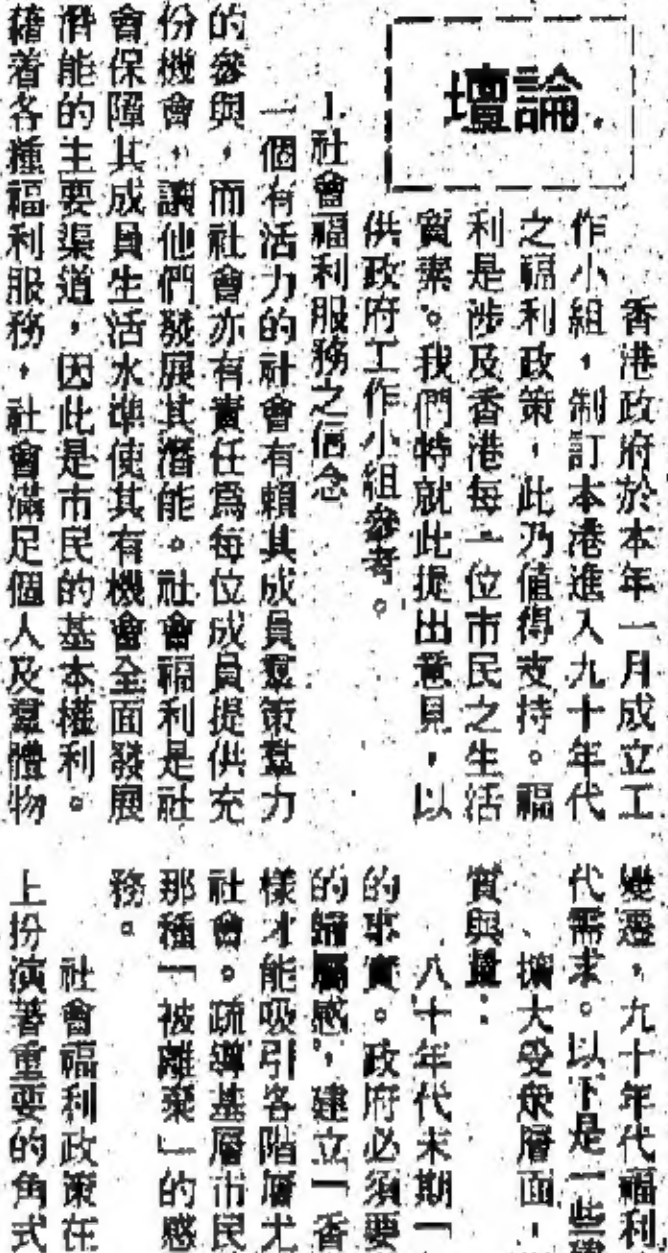 論壇
香港政府於本年一月成立工
作小組，制訂本港進入九十年代
之福利政策，此乃值得支持。福
利是涉及香港每一位市民之生活
質素。我們特就此提出意見，以
供政府工作小組參考。
1.社會福利服務之信念
一個有活力的社會有賴其成員羣策羣力
的參與，而社會亦有責任爲每位成員提供充
份機會，讓他們發展其潛能。社會福利是社
會保障其成員生活水準使其有機會全面發展
潛能的主要渠道，因此是市民的基本權利。
藉着各種福利服務，社會滿足個人及羣體物
變遷，九十年代福利
代需求。以下是一些
擴大受衆層面，
質與量：
八十年代末期一
的事實。政府必須要
的歸屬感，建立「香
樣才能吸引各階層尤
社會。疏導基層市民
那種「被離棄」的感
務。
社會福利政策在
上扮演著重要的角式